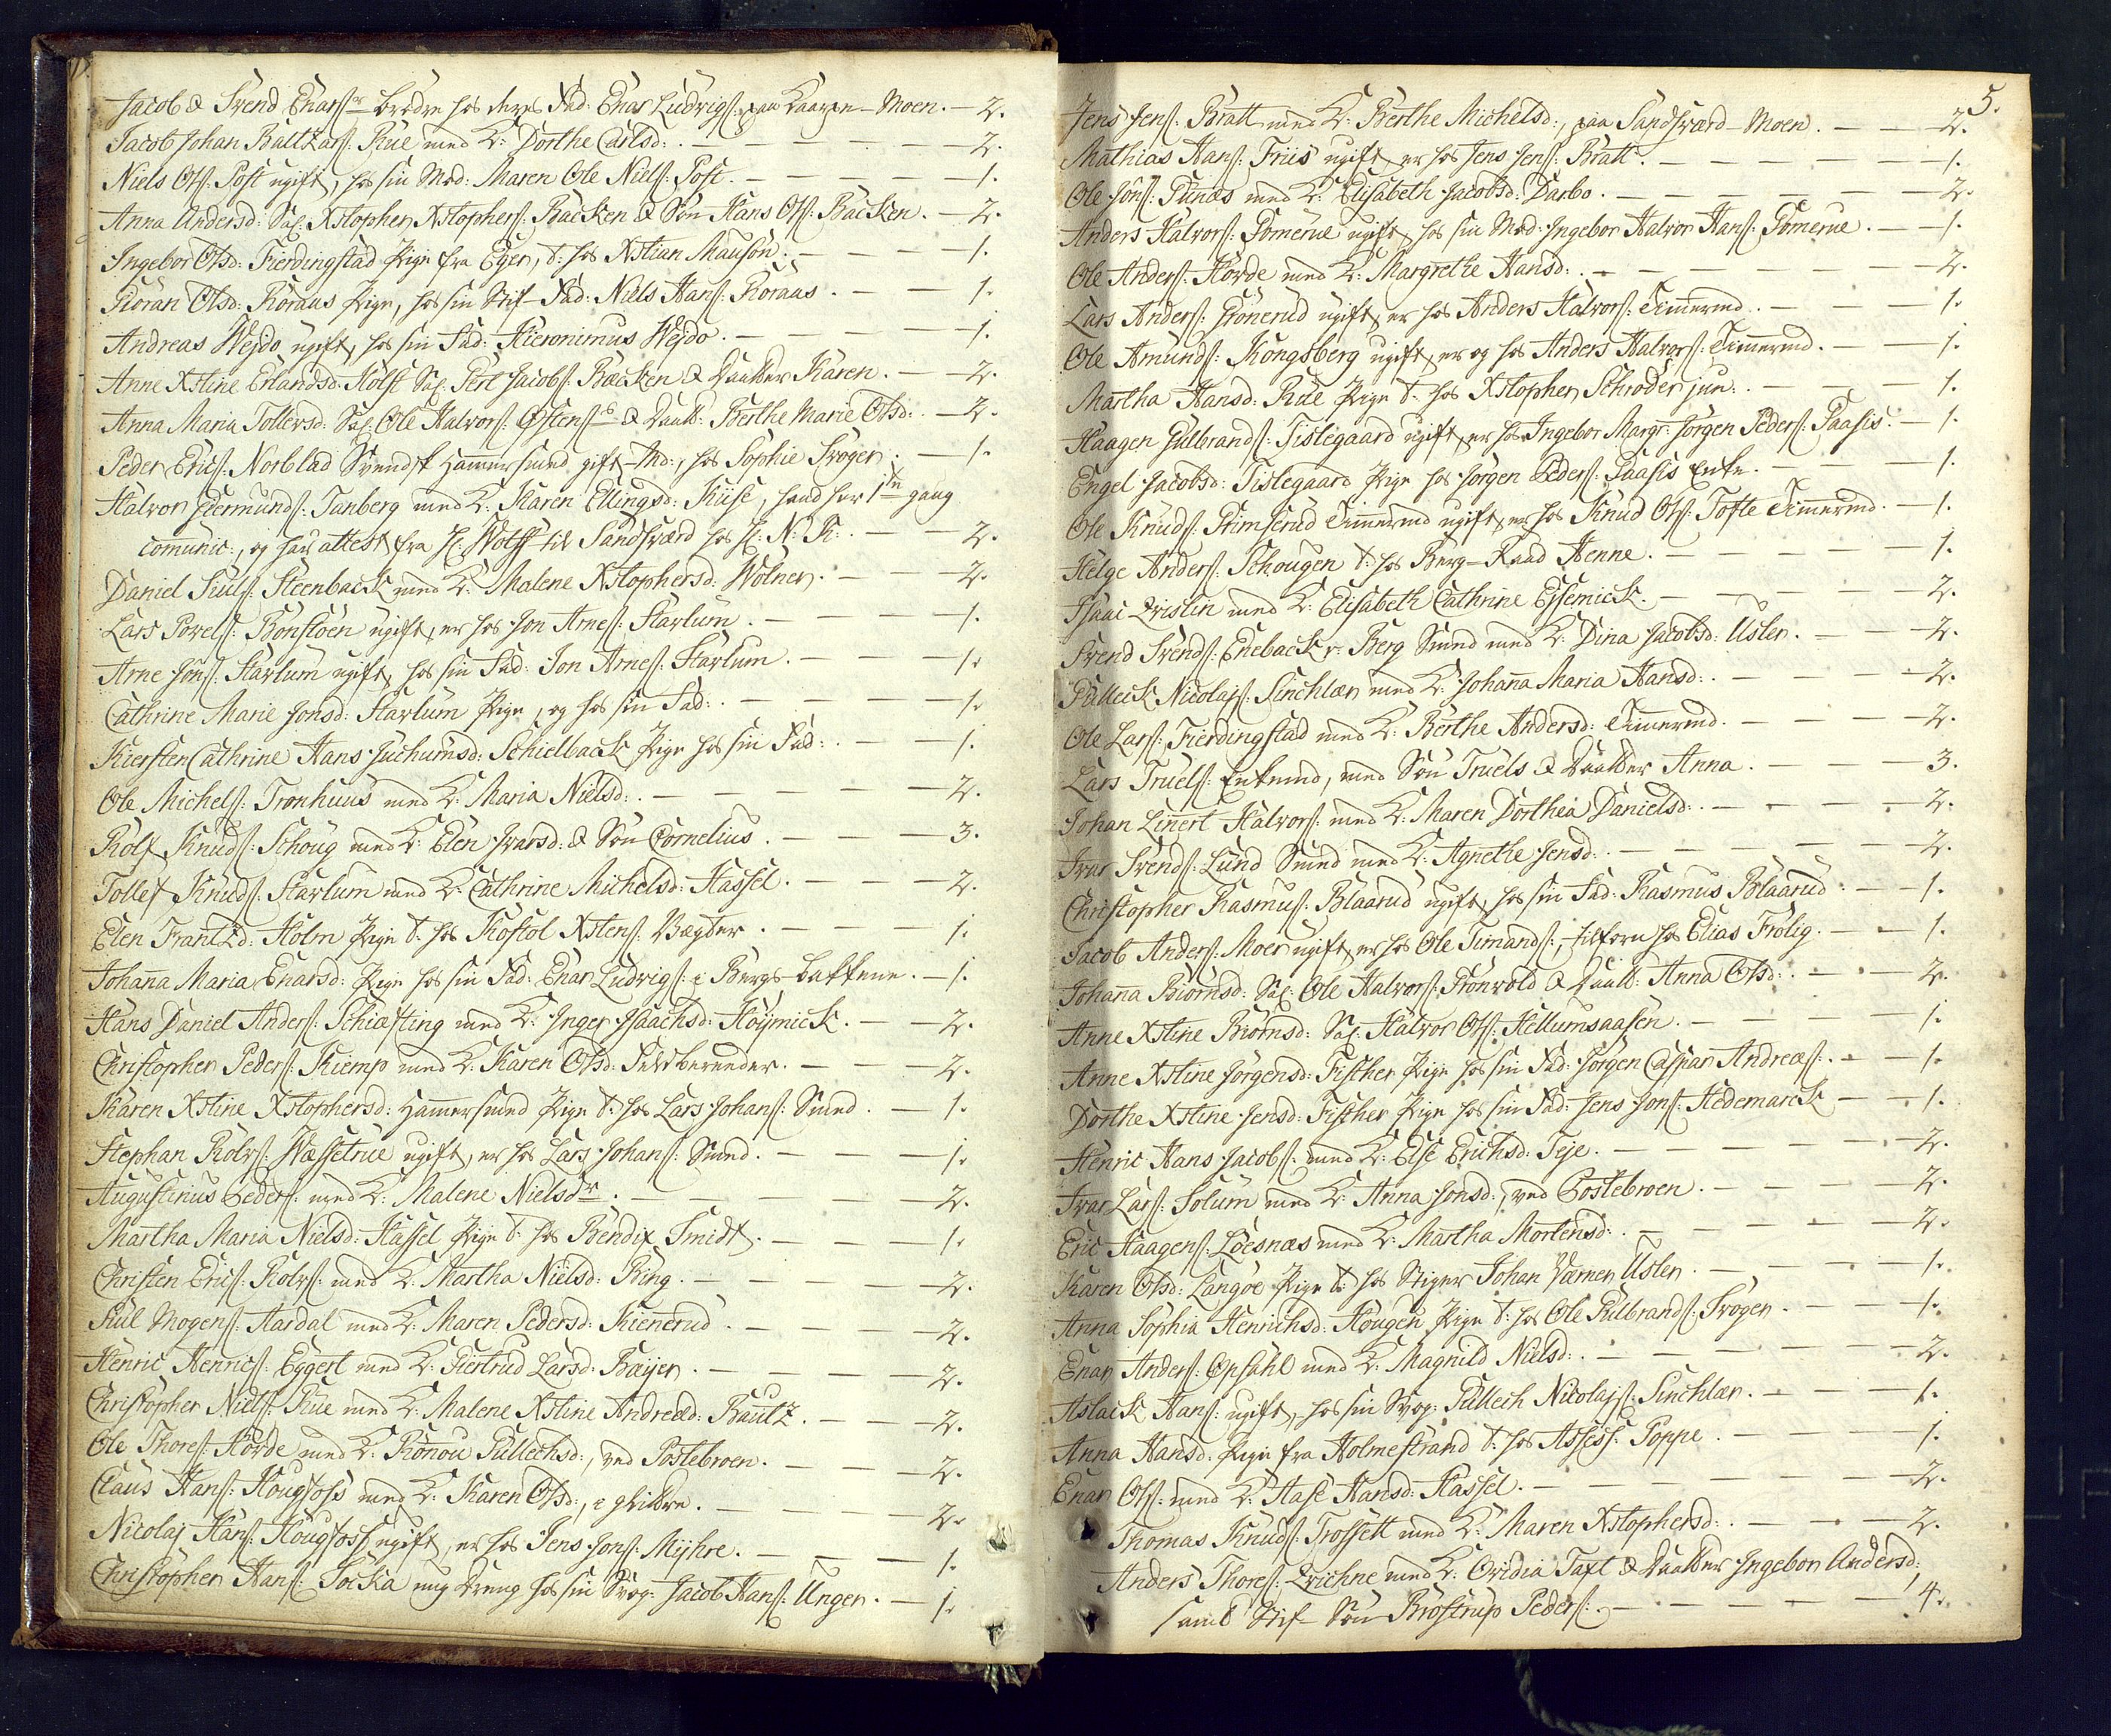 Jacob & Svend Enars:er brødre hos deres Fad: Enar Ludvigs: paa Moen. — 2.
Jacob Johan Baltzars: Rue med K: Dorthe Carlsd: — 2.
Niels Ols: Post ugift, hos sin Mod: Maren Ole Niels: Post. — 1.
Anna Andersd: Sal: Xstopher Xstophers: Backen & Søn Hans Ols: Backen. — 2.
Ingebor Olsd: Fierdingstad Pige fra Eger, t: hos Xstian Mausön. — 1.
Gioran Olsd: Koraas Pige, hos sin Stif-Fad: Niels Hans: Koraas. — 1.
Andreas Wejdo ugift, hos sin Fad: Hieronimus Wejdo. — 1.
Anne Xstine Erlandsd: Holst Sal: Perl Jacobs: Bäcken & Daatter Karen. — 2.
Anna Maria Tollersd: Sal: Ole Halvors: & Daatt: Berthe Marie Olsd: — 2.
Peder Erics: Norblad Svendsk Hammersmed, gift-Md:, hos Sophie Skogen. — 1.
Halvor Germunds: Tanberg med K: Karen Ellingsd: Kiise, hand her 1te gang
communic:, og har attest fra H: Wolff til Sandsværd hos H: N: K: — 2.
Daniel Siuls: Steenback med K: Malene Xstophersd: Wølner. — 2.
Lars Powels: Bonstoen ugift, er hos Jon Arnes: Starlum. — 1.
Arne Jons: Starlum ugift, hos sin Fad: Jon Arnes: Starlum. — 1.
Cathrine Marie Jonsd: Starlum Pige, og hos sin Fad: — 1.
Kiersten Cathrine Hans Juchumsd: Schielback Pige hos sin Fad: — 1.
Ole Michels: Tronhuus med K: Maria Nielsd: — 2.
Rolf Knuds: Schoug med K: Elen Ivarsd: & Søn Cornelius. — 3.
Tollef Knuds: Starlum med K: Cathrine Michelsd: Hassel. — 2.
Elen Frantzd: Holm Pige t: hos Kostol Xstens: Vægter. — 1.
Johanna Maria Enarsd: Pige hos sin Fad: Enar Ludvigs: i Bergs-bakkene. — 1.
Hans Daniel Anders: Schiefting med K: Inger Isaachsd: Höymick. — 2.
Christopher Peders: Kiemp med K: Karen Olsd: — 2.
Karen Xstine Xstophersd: Hammersmed Pige t: hos Lars Johans: Smed. — 1.
Stephan Rolvs: Wæssetrue ugift, er hos Lars Johans: Smed. — 1.
Augustinus Peders: med K: Malene Nielsdr. — 2.
Martha Maria Nielsd: Hassel Pige t: hos Bendix Smidt. — 1.
Christen Erics: Rolvs: med K: Martha Nielsd: Ring. — 2.
Siul Mogens: Aardal med K: Maren Pedersd: Kiennerud. — 2.
Henric Henrics: Eggert med K: Giertrud Larsd: Bæyer. — 2.
Christopher Niels: Rue med K: Malene Xstine Andreæd: Bautz. — 2.
Ole Thores: Hovde med K: Ronou Gullechsd:, ved Postebroen. — 2.
Claus Hans: Hougfoss med K: Karen Olsd:, — 2.
Nicolaj Hans: Hougfoss ugift, er hos Jens Jons: Mijhre. — 1.
Christopher Hans: Socka ung Dreng hos sin Svog: Jacob Hans: Unger. — 1.
5.
Jens Jens: Bratt med K: Berthe Michelsd:, paa Sandsværd-Moen. — 2.
Mathias Hans: Friis ugift, er hos Jens Jens: Bratt. — 1.
Ole Jons: Gunæs med K: Elisabeth Jacobsd: Darbo. — 2.
Anders Halvors: Gomerue ugift, hos sin Mod: Ingebor Halvor Hans: Gomerue. — 1.
Ole Anders: Hovde med K: Margrethe Hansd: — 2.
Lars Anders: Gronerud ugift, er hos Anders Halvors: Timmermd. — 1.
Ole Amunds: Kongsberg ugift, er og hos Anders Halvors: Timmermd. — 1.
Martha Hansd: Rue Pige t: hos Xstopher Schroder jun: — 1.
Haagen Gulbrands: Tislegaard ugift, er hos Ingebor Margr: Jorgen Peders: Paasis: — 1.
Engel Jacobsd: Tislegaard Pige hos Jorgen Peders: Paasis Enke. — 1.
Ole Knuds: Grimserud Timmermd ugift, er hos Knud Ols: Tofte Timmermd. — 1.
Helge Anders: Schougen t: hos Berg-Raad Henne. — 1.
Isaac Qvislin med K: Elisabeth Cathrine Eysemick. — 2.
Svend Svends: Enebach v: Berg Smed med K: Dina Jacobsd: Usler. — 2.
Gulleck Nicolajs: Sinchlær med K: Johanna Maria Hansd: — 2.
Ole Lars: Fierdingstad med K: Berthe Andersd: Timmermd. — 2.
Lars Truels: Enkemd, med Søn Truels & Daatter Anna. — 3.
Johan Linert Halvors: med K: Maren Dorthea Danielsd: — 2.
Ivar Svends: Lund Smed med K: Agnethe Jensd: — 2.
Christopher Rasmus: Blaarud ugift, hos sin Fad: Rasmus Blaarud. — 1.
Jacob Anders: Moer ugift, er hos Ole Simands:, tilforn hos Elias Frolig. — 1.
Johanna Biornsd: Sal: Ole Halvors: Gronvold & Daatt: Anna Olsd: — 2.
Anne Xstine Biornsd: Sal: Halvor Ols: Hellumsaasen. — 1.
Anne Xstine Jorgensd: Fischer Pige hos sin Fad: Jorgen Caspar Andreæs: — 1.
Dorthe Xstine Jensd: Fischer Pige hos sin Fad: Jens Jons: Hedemarck — 1.
Henric Hans Jacobs: med K: Else Erichsd: Teje. — 2.
Ivar Lars: Solum med K: Anna Jonsd:, ved Postebroen. — 2.
Eric Haagens: Löesnæs med K: Martha Mortensd: — 2.
Karen Olsd: Langöe Pige t: hos Stiger Johan Værner Usler. — 1.
Anna Sophia Henrichsd: Hougen Pige t: hos Ole Gulbrands: Skogen. — 1.
Enar Anders: Opsahl med K: Magnild Nielsd: — 2.
Aslack Hans: ugift, hos sin Svog: Gullech Nicolajs: Sinchlær. — 1.
Anna Hansd: Pige fra Holmestrand t: hos Assess: Poppe. — 1.
Enar Ols: med K: Aase Hansd: Hassel. — 2.
Thomas Knuds: Trossett med K: Maren Xstophersd: — 2.
Anders Thores: Qvichne med K: Ovidia Taxt & Daatter Ingebor Andersd:,
samt Stif-Søn Brostrup Peders: — 4.